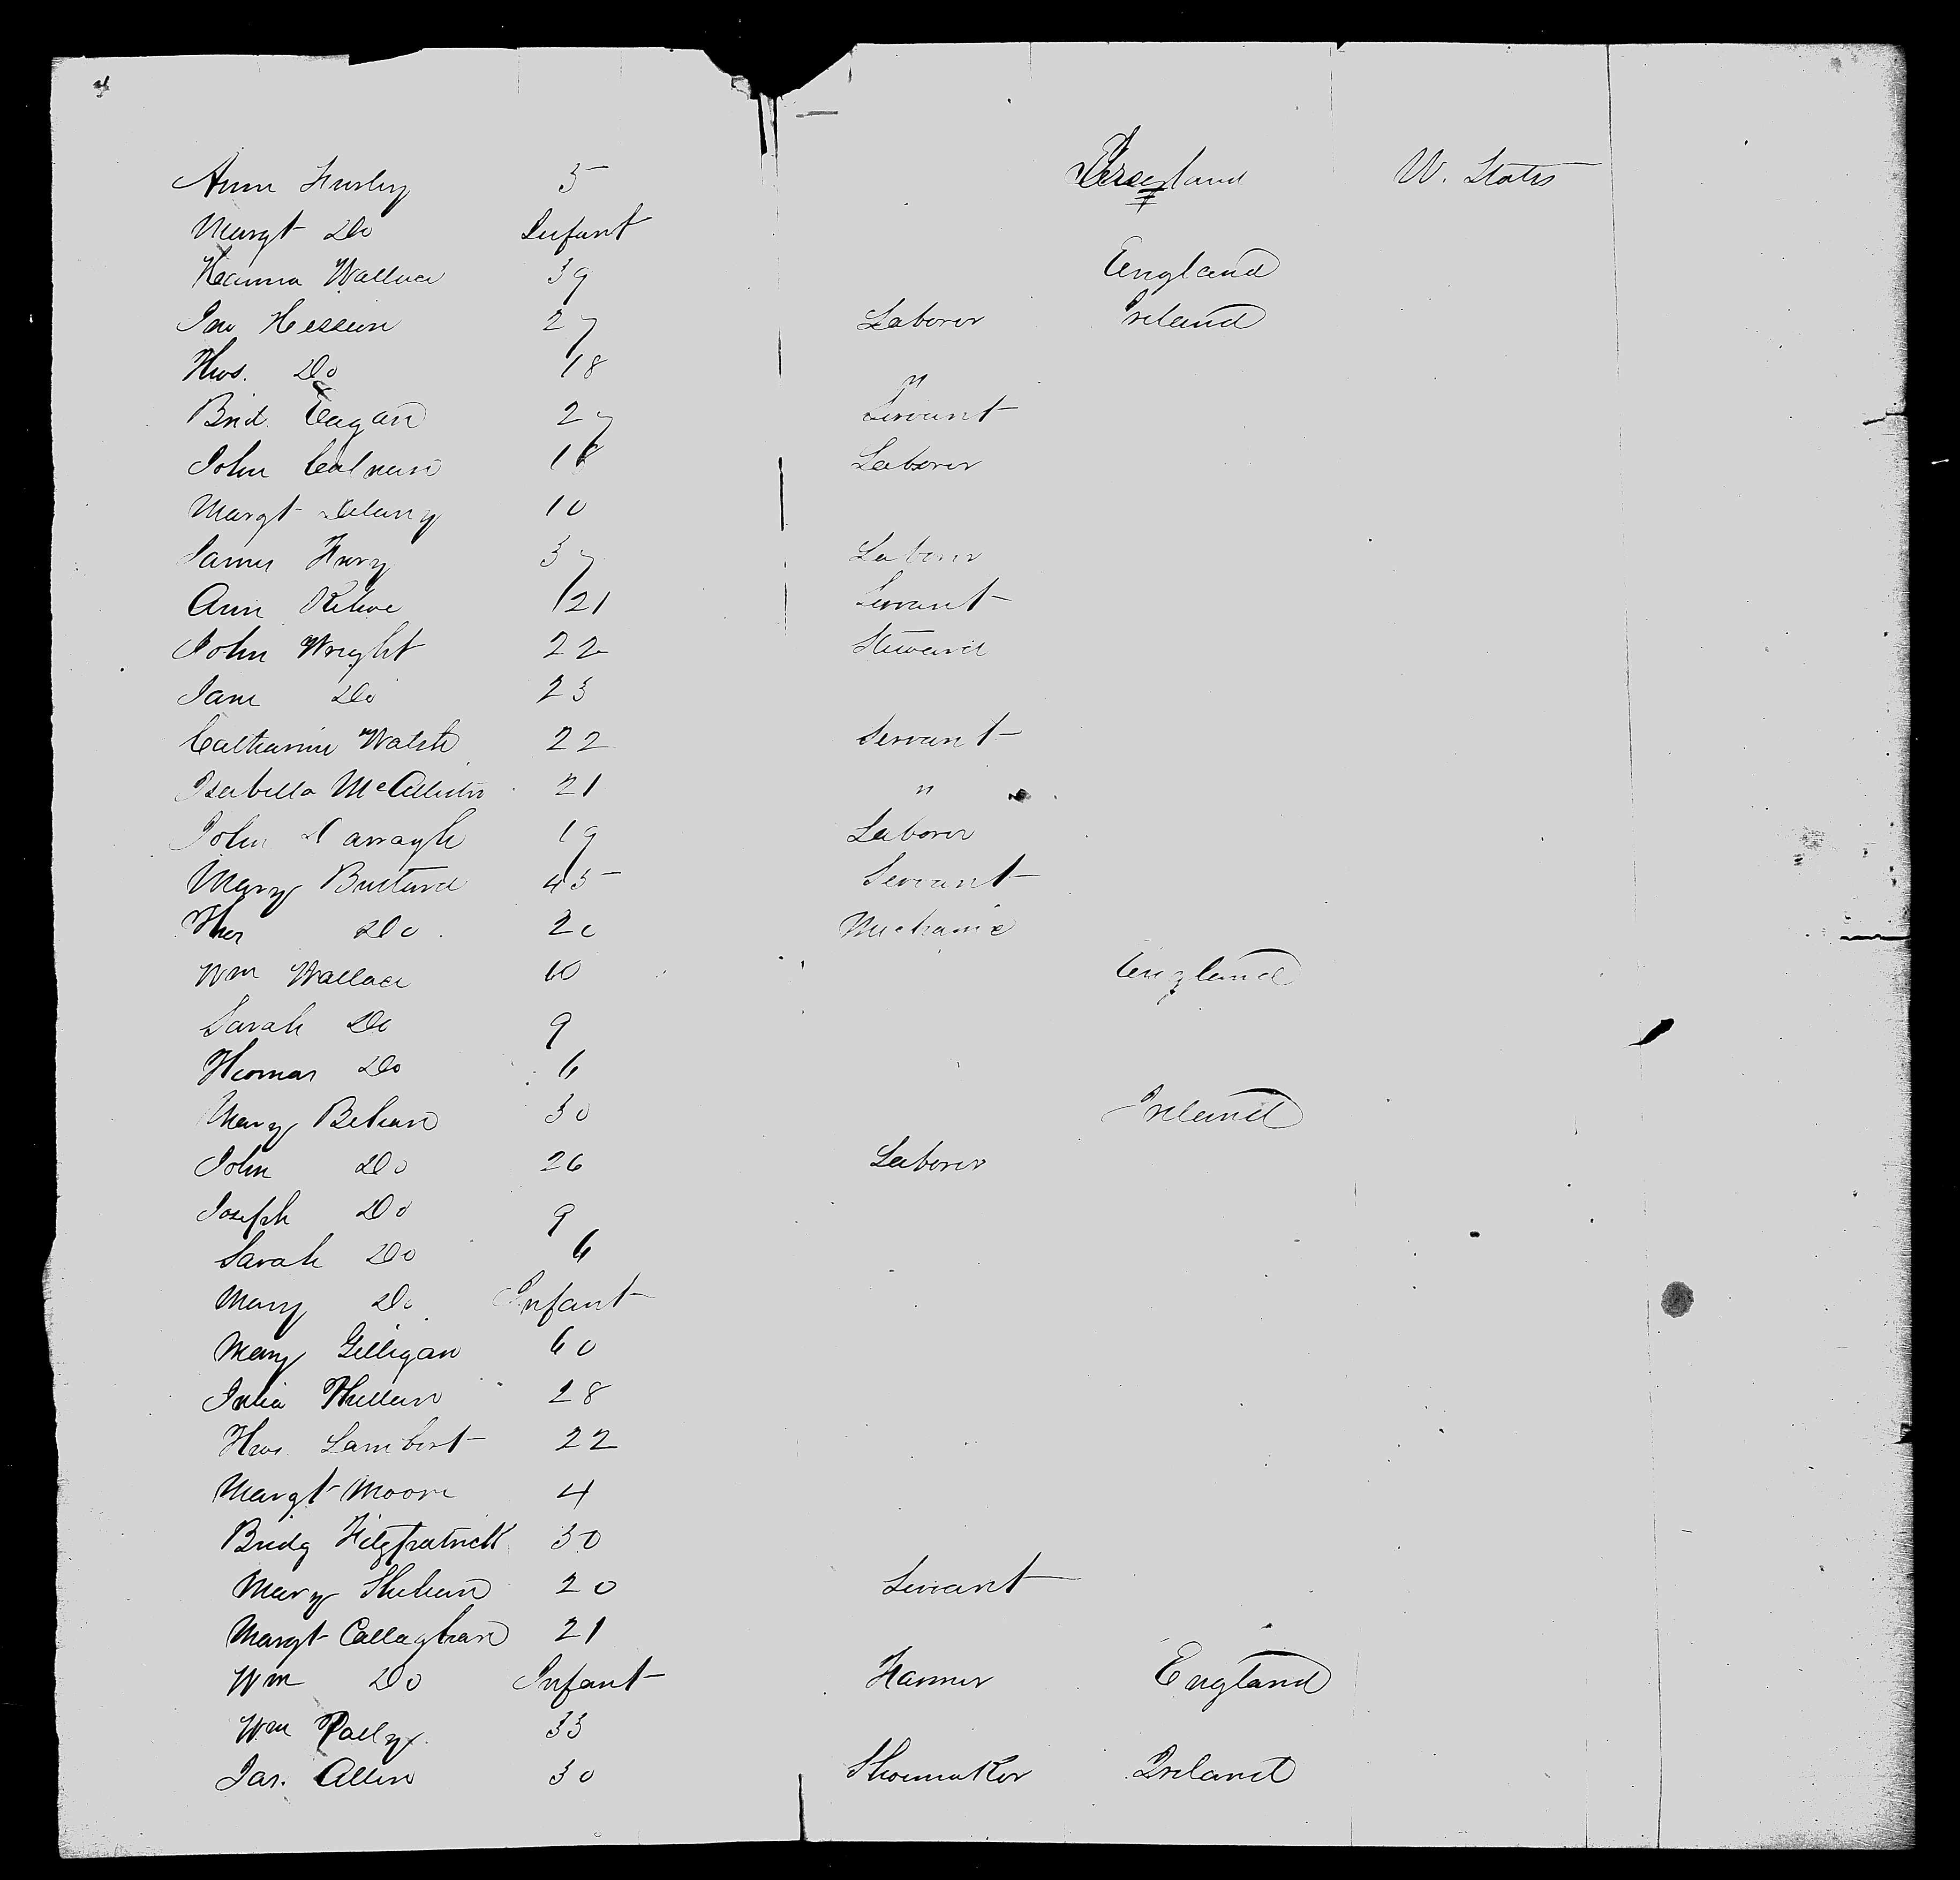 Ann Hurley 5 Ireland U. States
Margt Do Infant
Hanna Wallace 39 England
Jno Hessian 27 Laborer Ireland
Thos. Do 18 "
Brid. Eagan 27 Servant
John Calnan 18 Laborer
Margt Delany 10
James Fury 37 Laborer
Ann Kehoe 21 Servant
John Wright 22 Steward
Jane Do 23
Catharine Walsh 22 Servant
Isabella McAllister 21 "
John Darragh 19 Laborer
Mary Bustard 45 Servant
Thos Do 20 Mechanic
Wm Wallace 10 England
Sarah Do 9
Thomas Do 6
Mary Behan 30 Ireland
John Do 26 Laborer
Joseph Do 9
Sarah Do 6
Mary Do Infant
Mary Gilligan 60
Julia 28
Thos Lambert 22
Margt Moore 4
Bridg Fitzpatrick 30
Mary Shehan 20 Servant
Margt Callaghan 21
Wm Do Infant Farmer England
Wm 33
Jas. Allen 30 Shoemaker Ireland